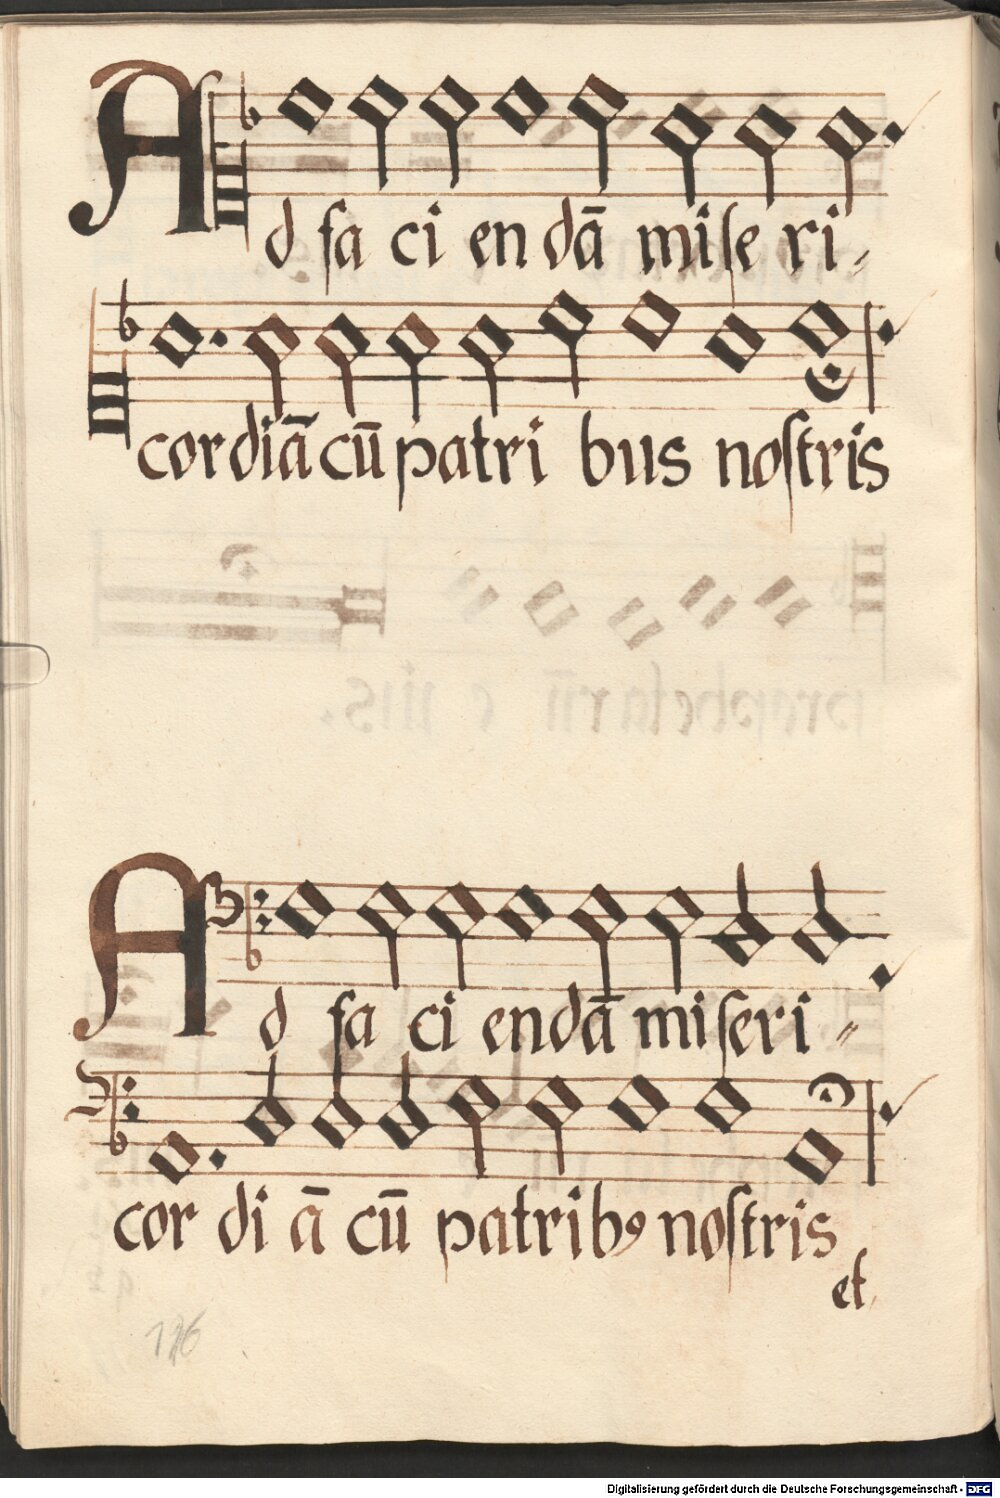 Ad fa ci en dā miſe ri-
cor diā cū patri bus noſtris
Ad fa ci en dā miſeri-
cor di ā cū patribꝰ noſtris
et
126
Digitalisierung gefördert durch die Deutsche Forschungsgemeinschaft - DFG